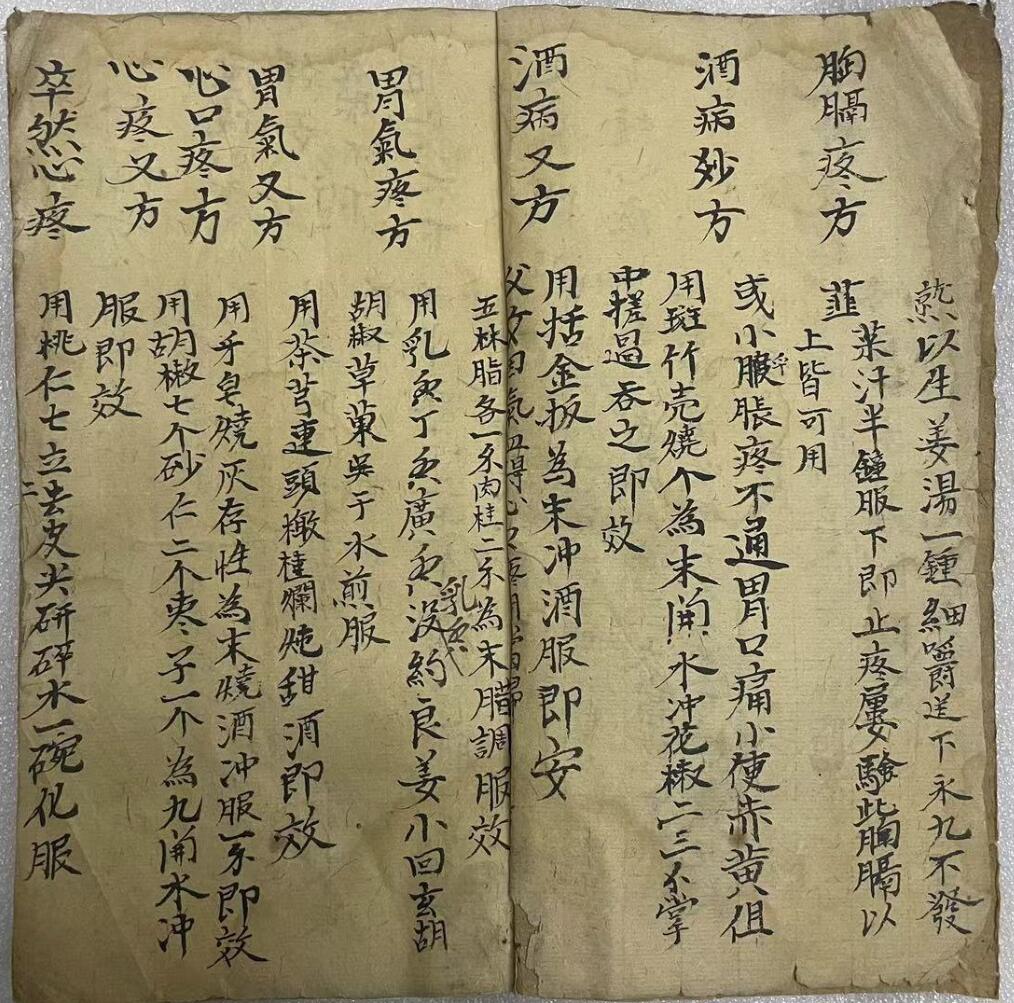 熱以生姜湯一鍾細嚼送下永九不發
胸膈疼方
韮菜汁半鐘服下即止疼屢驗此胸膈以
上皆可用
酒病妙方
或小腹脹疼不通胃口痛小便赤黄但
用斑竹壳燒个為末開水冲花椒二三个掌
中搓過吞之即效
酒病又方
用括金板為末冲酒服即安
五林脂各一不肉桂二不為末腊調服效
胃氣疼方
用乳香丁香廣香沒約良姜小回玄胡
胡椒草菓吳于水煎服
胃氣又方
用茶芎連頭橄桂爛炖甜酒即效
心口疼方
用牙皂燒灰存性為末燒酒冲服一不即效
心疼又方
用胡椒七个砂仁二个枣子一个為九開水冲
服即效
卒然心疼
用桃仁七立去皮尖研碎水一碗化服